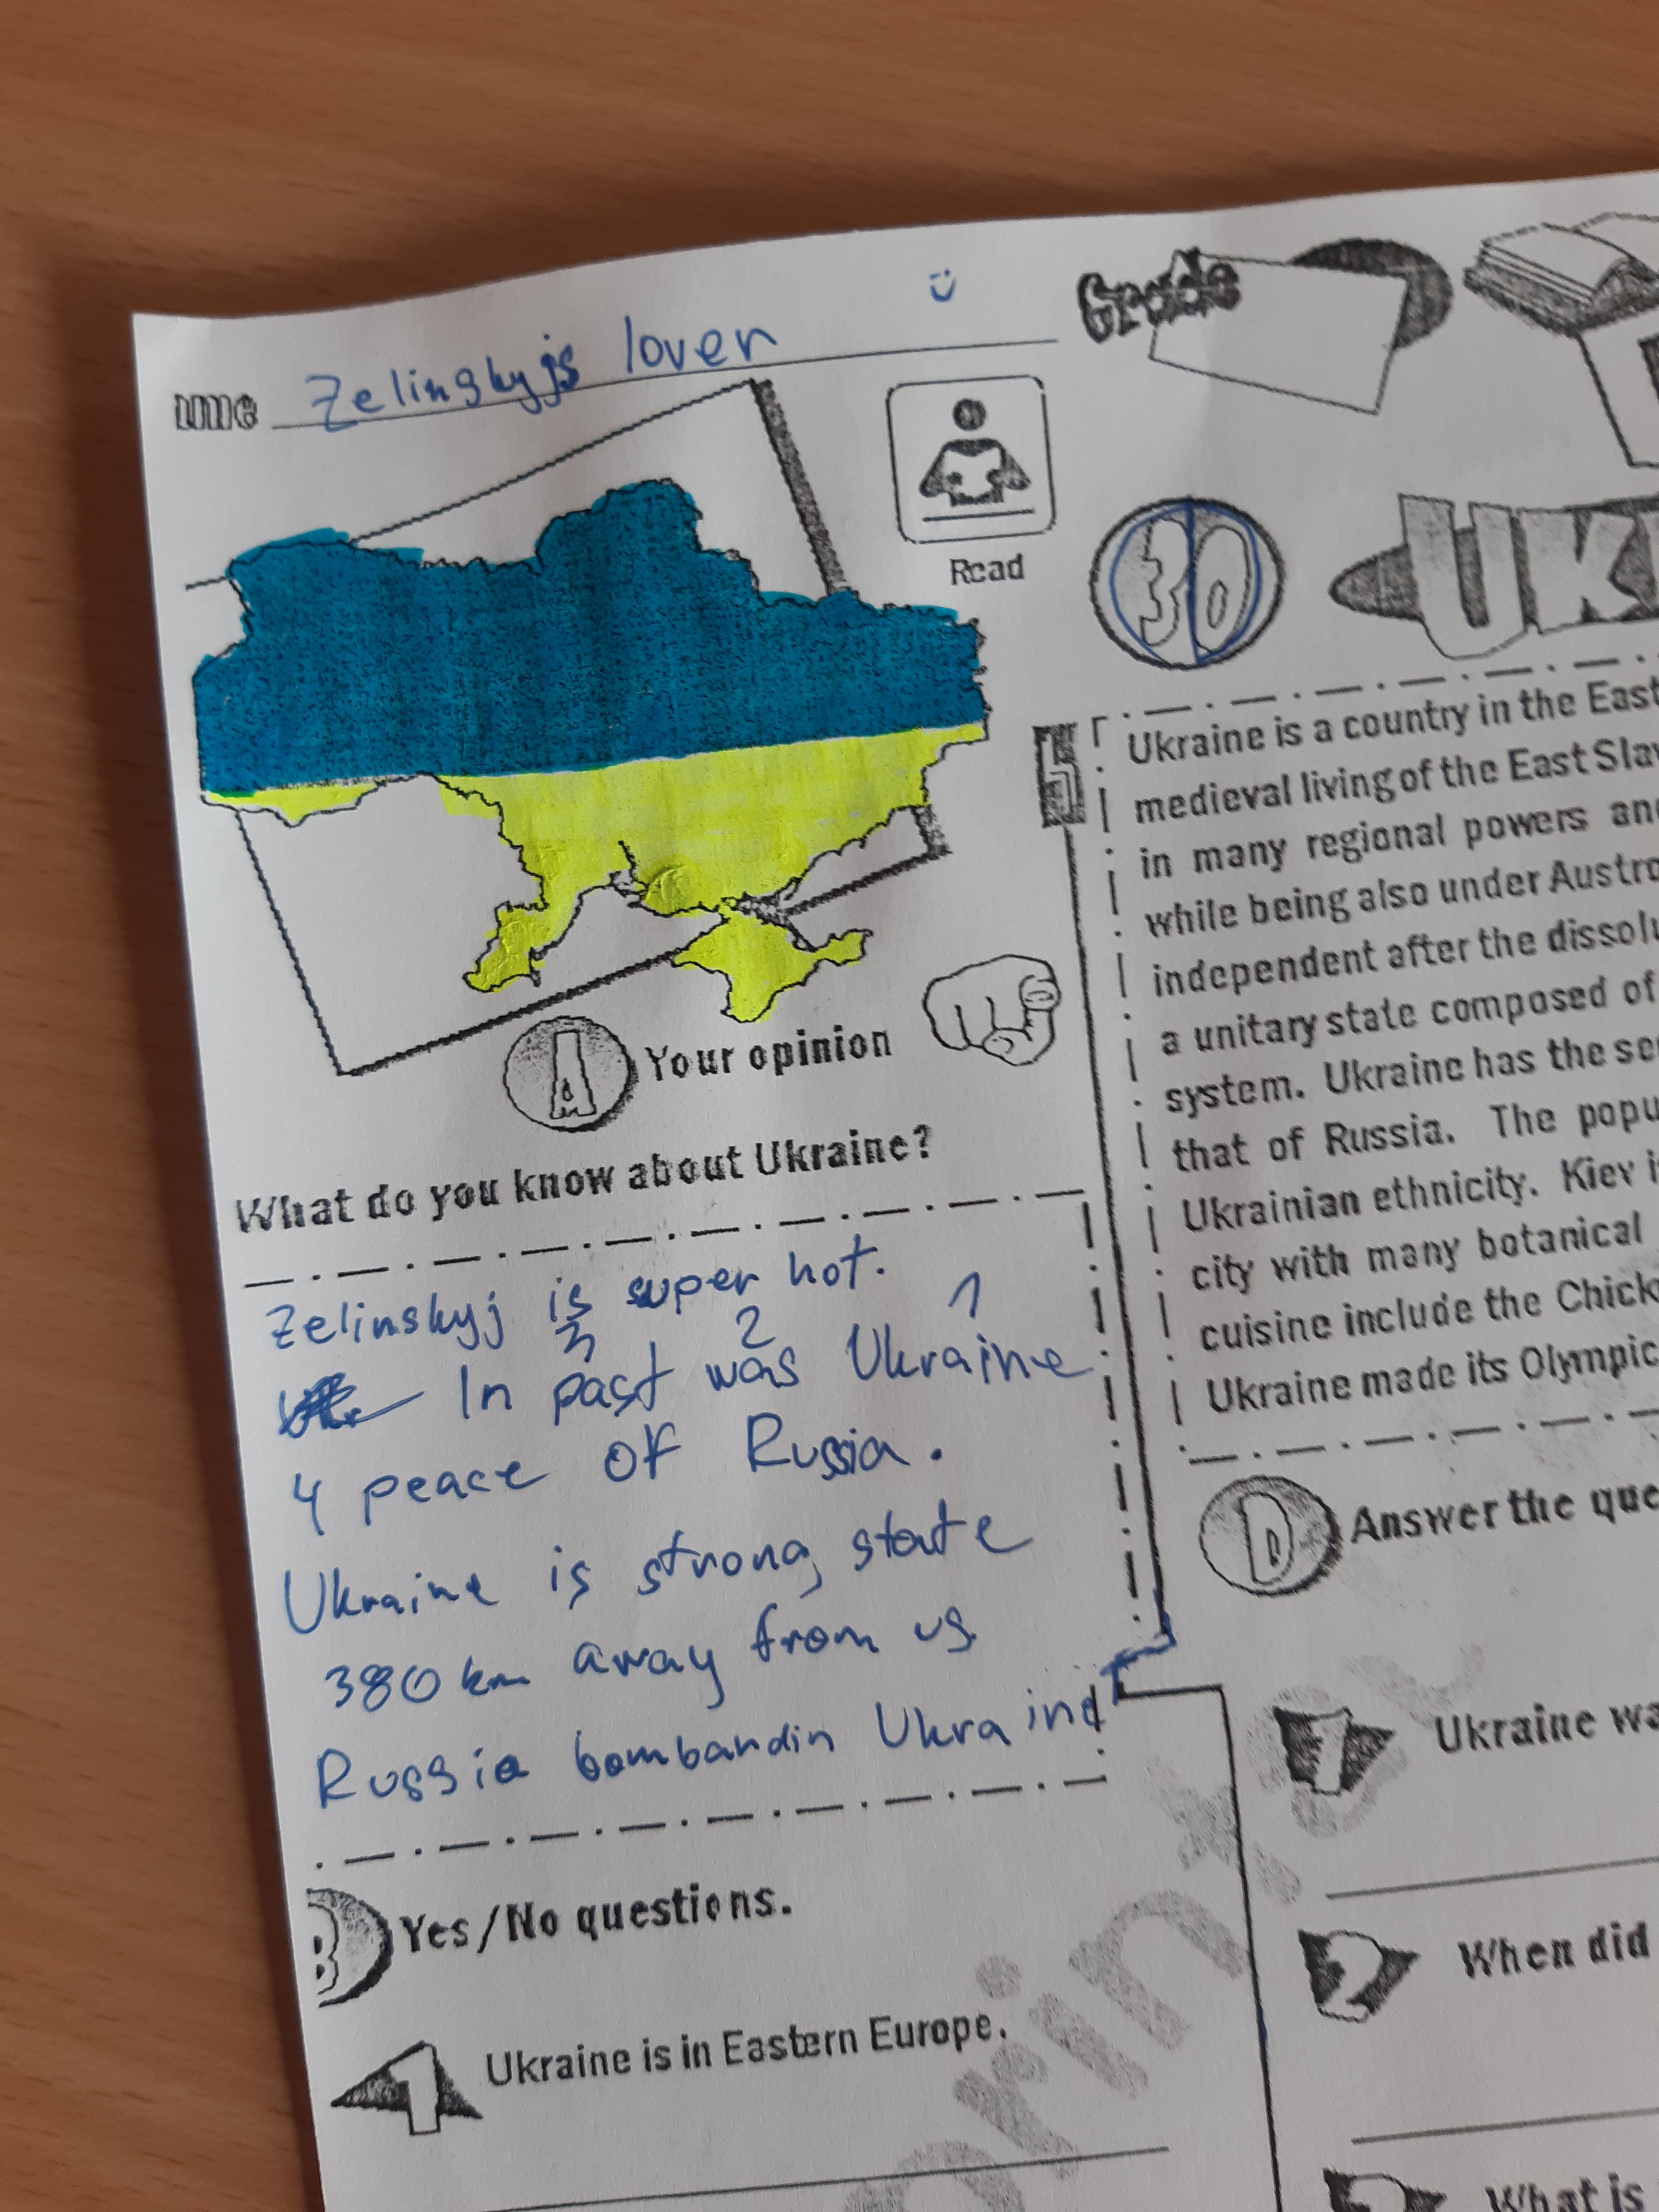 ame Zelinskyjs lover
Grade
Read
30 UK
Your opinion
A
What do you know about Ukraine?
Zelinskyj is super hot.
3 2 1
In past was Ukraine
4 peace of Russia.
Ukraine is strong state
380 km away from us
Russia bombardin Ukraine
B Yes/No questions.
1 Ukraine is in Eastern Europe.
Ukraine is a country in the East
medieval living of the East Slav
in many regional powers and
while being also under Austro
independent after the dissolu
a unitary state composed of
system. Ukraine has the se
that of Russia. The popu
Ukrainian ethnicity. Kiev i
city with many botanical
cuisine include the Chick
Ukraine made its Olympic
D Answer the que
1 Ukraine wa
2 When did
What is